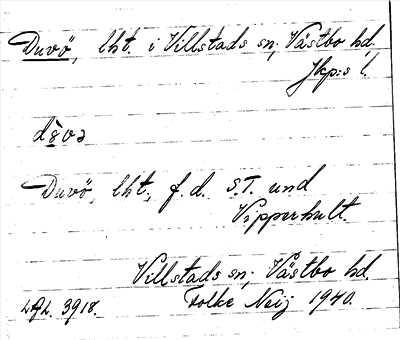 Duvö, lht. i Villstads sn; Västbo hd,
Jkp:s l.
Duvö, lht, f.d. S.T. und
Vipperhult.
Villstads sn; Västbo hd.
3918. Folke Neij 1940.